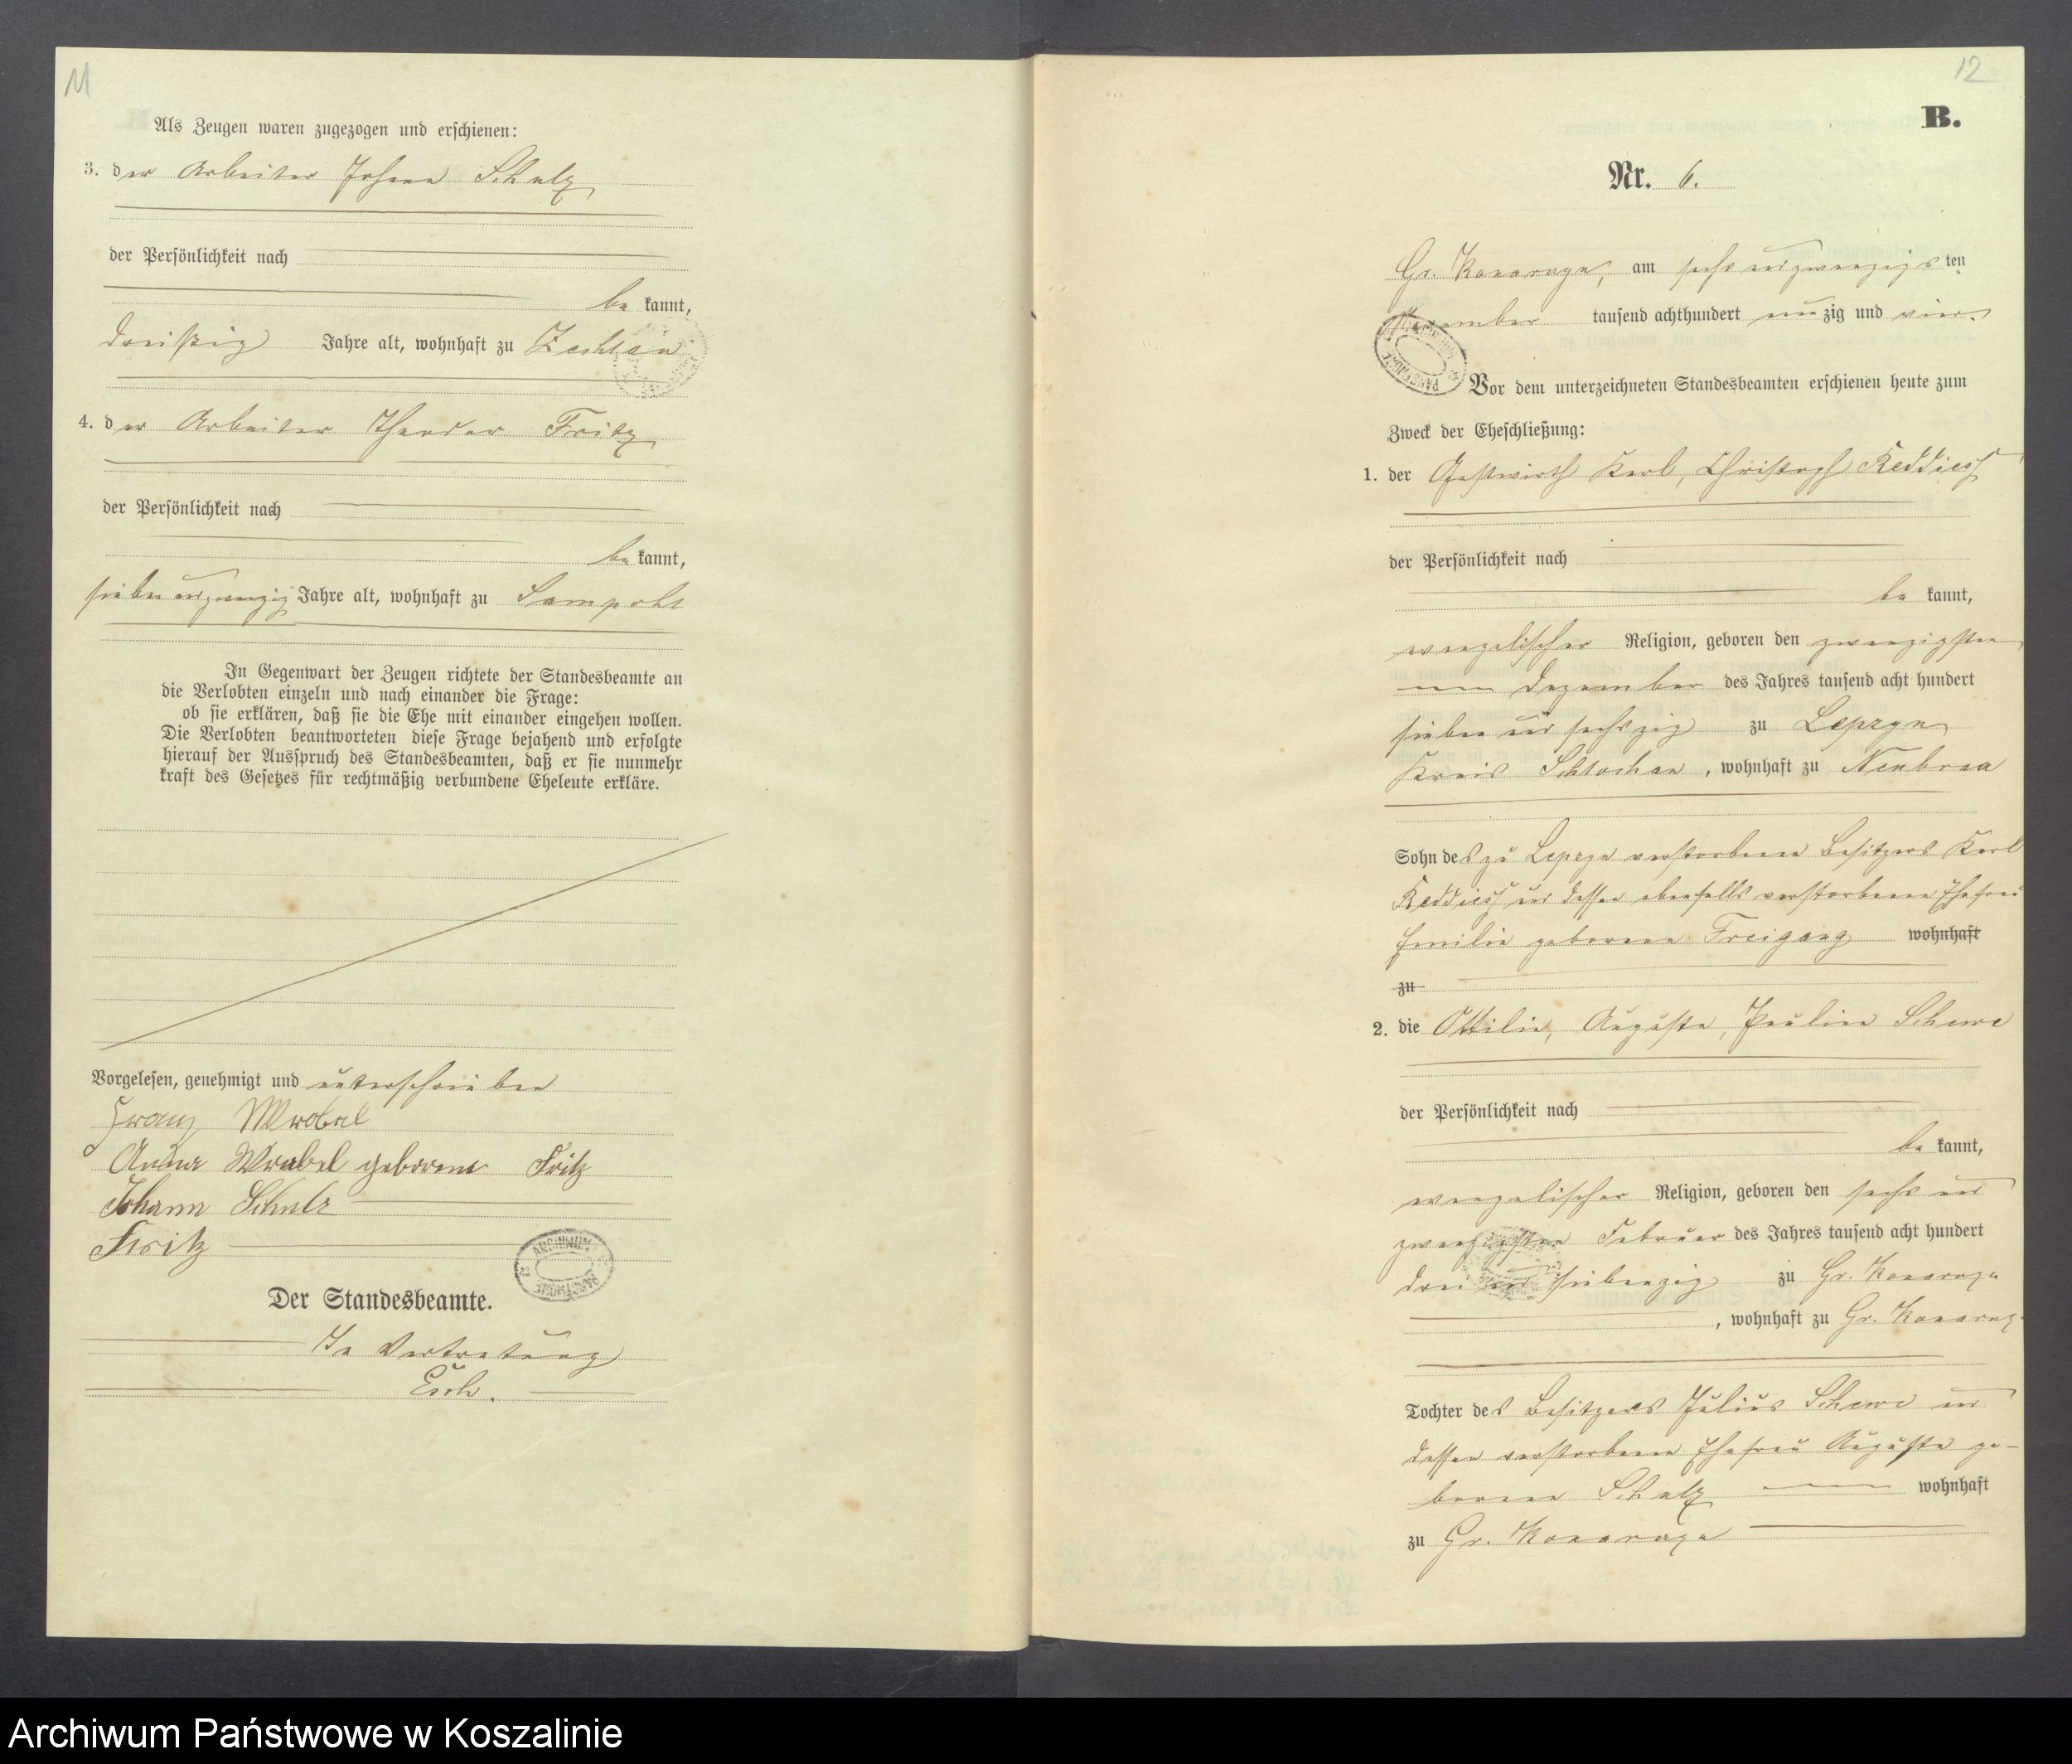 11
Als Zeugen waren zugezogen und erschienen:
3. der Arbeiter Johann Schulz
der Persönlichkeit nach
be kannt,
dreißig Jahre alt, wohnhaft zu Zechlau
4. der Arbeiter Theodor Fritz
der Persönlichkeit nach
be kannt,
siebenundzwanzig Jahre alt, wohnhaft zu Sampohl
In Gegenwart der Zeugen richtete der Standesbeamte an
die Verlobten einzeln und nach einander die Frage:
ob sie erklären, daß sie die Ehe mit einander eingehen wollen.
Die Verlobten beantworteten diese Frage bejahend und erfolgte
hierauf der Ausspruch des Standesbeamten, daß er sie nunmehr
kraft des Gesetzes für rechtmäßig verbundene Eheleute erkläre.
Vorgelesen, genehmigt und unterschrieben
Franz Wrobel
Anna Wrobel geborene Fritz
Johann Schulz
Fritz
ARCHIWUM PAŃSTWOWE
Der Standesbeamte.
In Vertretung
12
B.
Nr. 6.
Gr. Konarczyn, am sechsundzwanzigsten
November tausend achthundert neunzig und vier.
Vor dem unterzeichneten Standesbeamten erschienen heute zum
Zweck der Eheschließung:
1. der Gastwirth Karl, Christoph Keddies
der Persönlichkeit nach
be kannt,
evangelischer Religion, geboren den zwanzigsten
Dezember des Jahres tausend acht hundert
sieben und sechszig zu Lepzyn
Kreis Schlochau, wohnhaft zu Neubraa
Sohn des zu Lepzyn verstorbenen Besitzers Karl
Keddies und dessen ebenfalls verstorbenen Ehefrau
Emilie geborene Freigang wohnhaft
zu
2. die Ottilie, Auguste, Pauline Schewe
der Persönlichkeit nach
be kannt,
evangelischer Religion, geboren den sechs und
zwanzigsten Februar des Jahres tausend acht hundert
drei und siebenzig zu Gr. Konarczyn
, wohnhaft zu Gr. Konarczyn
Tochter des Besitzers Julius Schewe und
dessen verstorbenen Ehefrau Auguste ge-
borene Schulz wohnhaft
zu Gr. Konarczyn
Archiwum Państwowe w Koszalinie